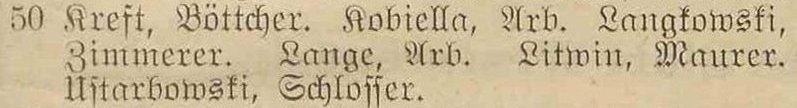 50 Kreft, Böttcher. Kobiella, Arb. Langkowski,
Zimmerer. Lange, Arb. Litwin, Maurer.
Ustarbowski, Schlosser.